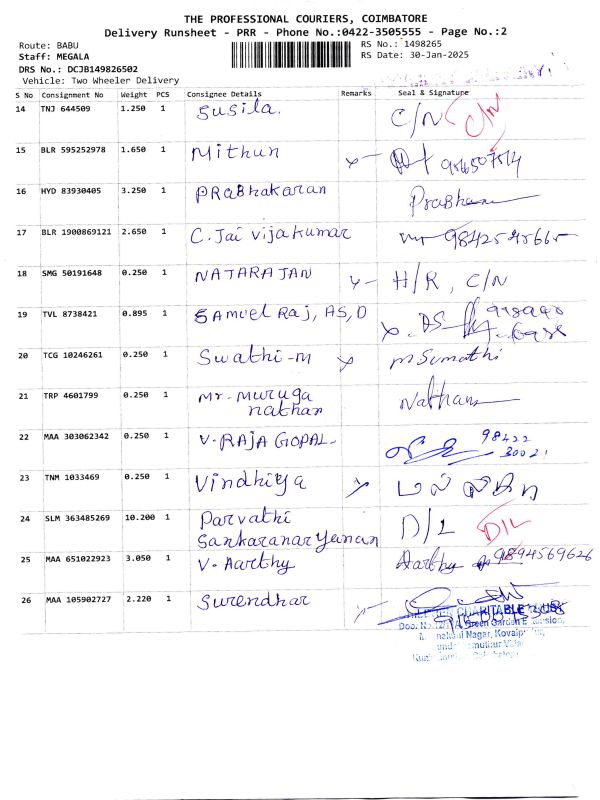 THE PROFESSIONAL COURIERS, COIMBATORE
Delivery Runsheet - PRR - Phone No.:0422-3505555 - Page No.:2
Route: BABU RS No.: 1498265
Staff: MEGALA RS Date: 30-Jan-2025
DRS No.: DCJB149826502
Vehicle: Two Wheeler Delivery
S No Consignment No Weight PCS Consignee Details Remarks Seal & Signature
14 TNJ 644509 1.250 1 Susila. C/N C/N
15 BLR 595252978 1.650 1 Mithun
16 HYD 83930405 3.250 1 PRabhakaran
17 BLR 1900869121 2.650 1 C.Jai vijakumar
18 SMG 50191648 0.250 1 NATARAJAN H/R, C/N
19 TVL 8738421 0.895 1 SAMUEL RAJ, AS, D
20 TCG 10246261 0.250 1 Swathi-m M Sumathi
21 TRP 4601799 0.250 1 Mr. Muruga
nathan Nathan
22 MAA 303062342 0.250 1 V-RAJA GOPAL- 98422
30021
23 TNM 1033469 0.250 1 Vindhiya
24 SLM 363485269 10.200 1 Parvathi
Sankaranarayanan D/L D/L
25 MAA 651022923 3.050 1 V. Aarthy Aarthy 9894569626
26 MAA 105902727 2.220 1 Surendhar
CHARITABLE
Green Garden
Nagar,